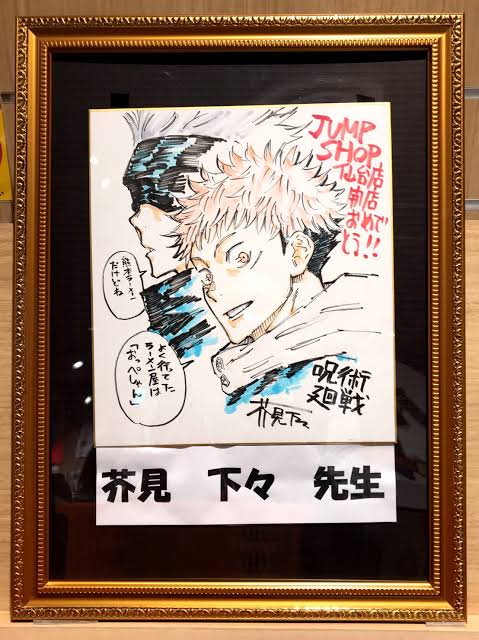 JUMP
SHOP
仙台店
開店
おめで
とう!!
熊本ラーメン
だけどね
よく行ってた
ラーメン屋は
「おっぺしゃん」
呪術
廻戦
芥見下々
芥見 下々 先生